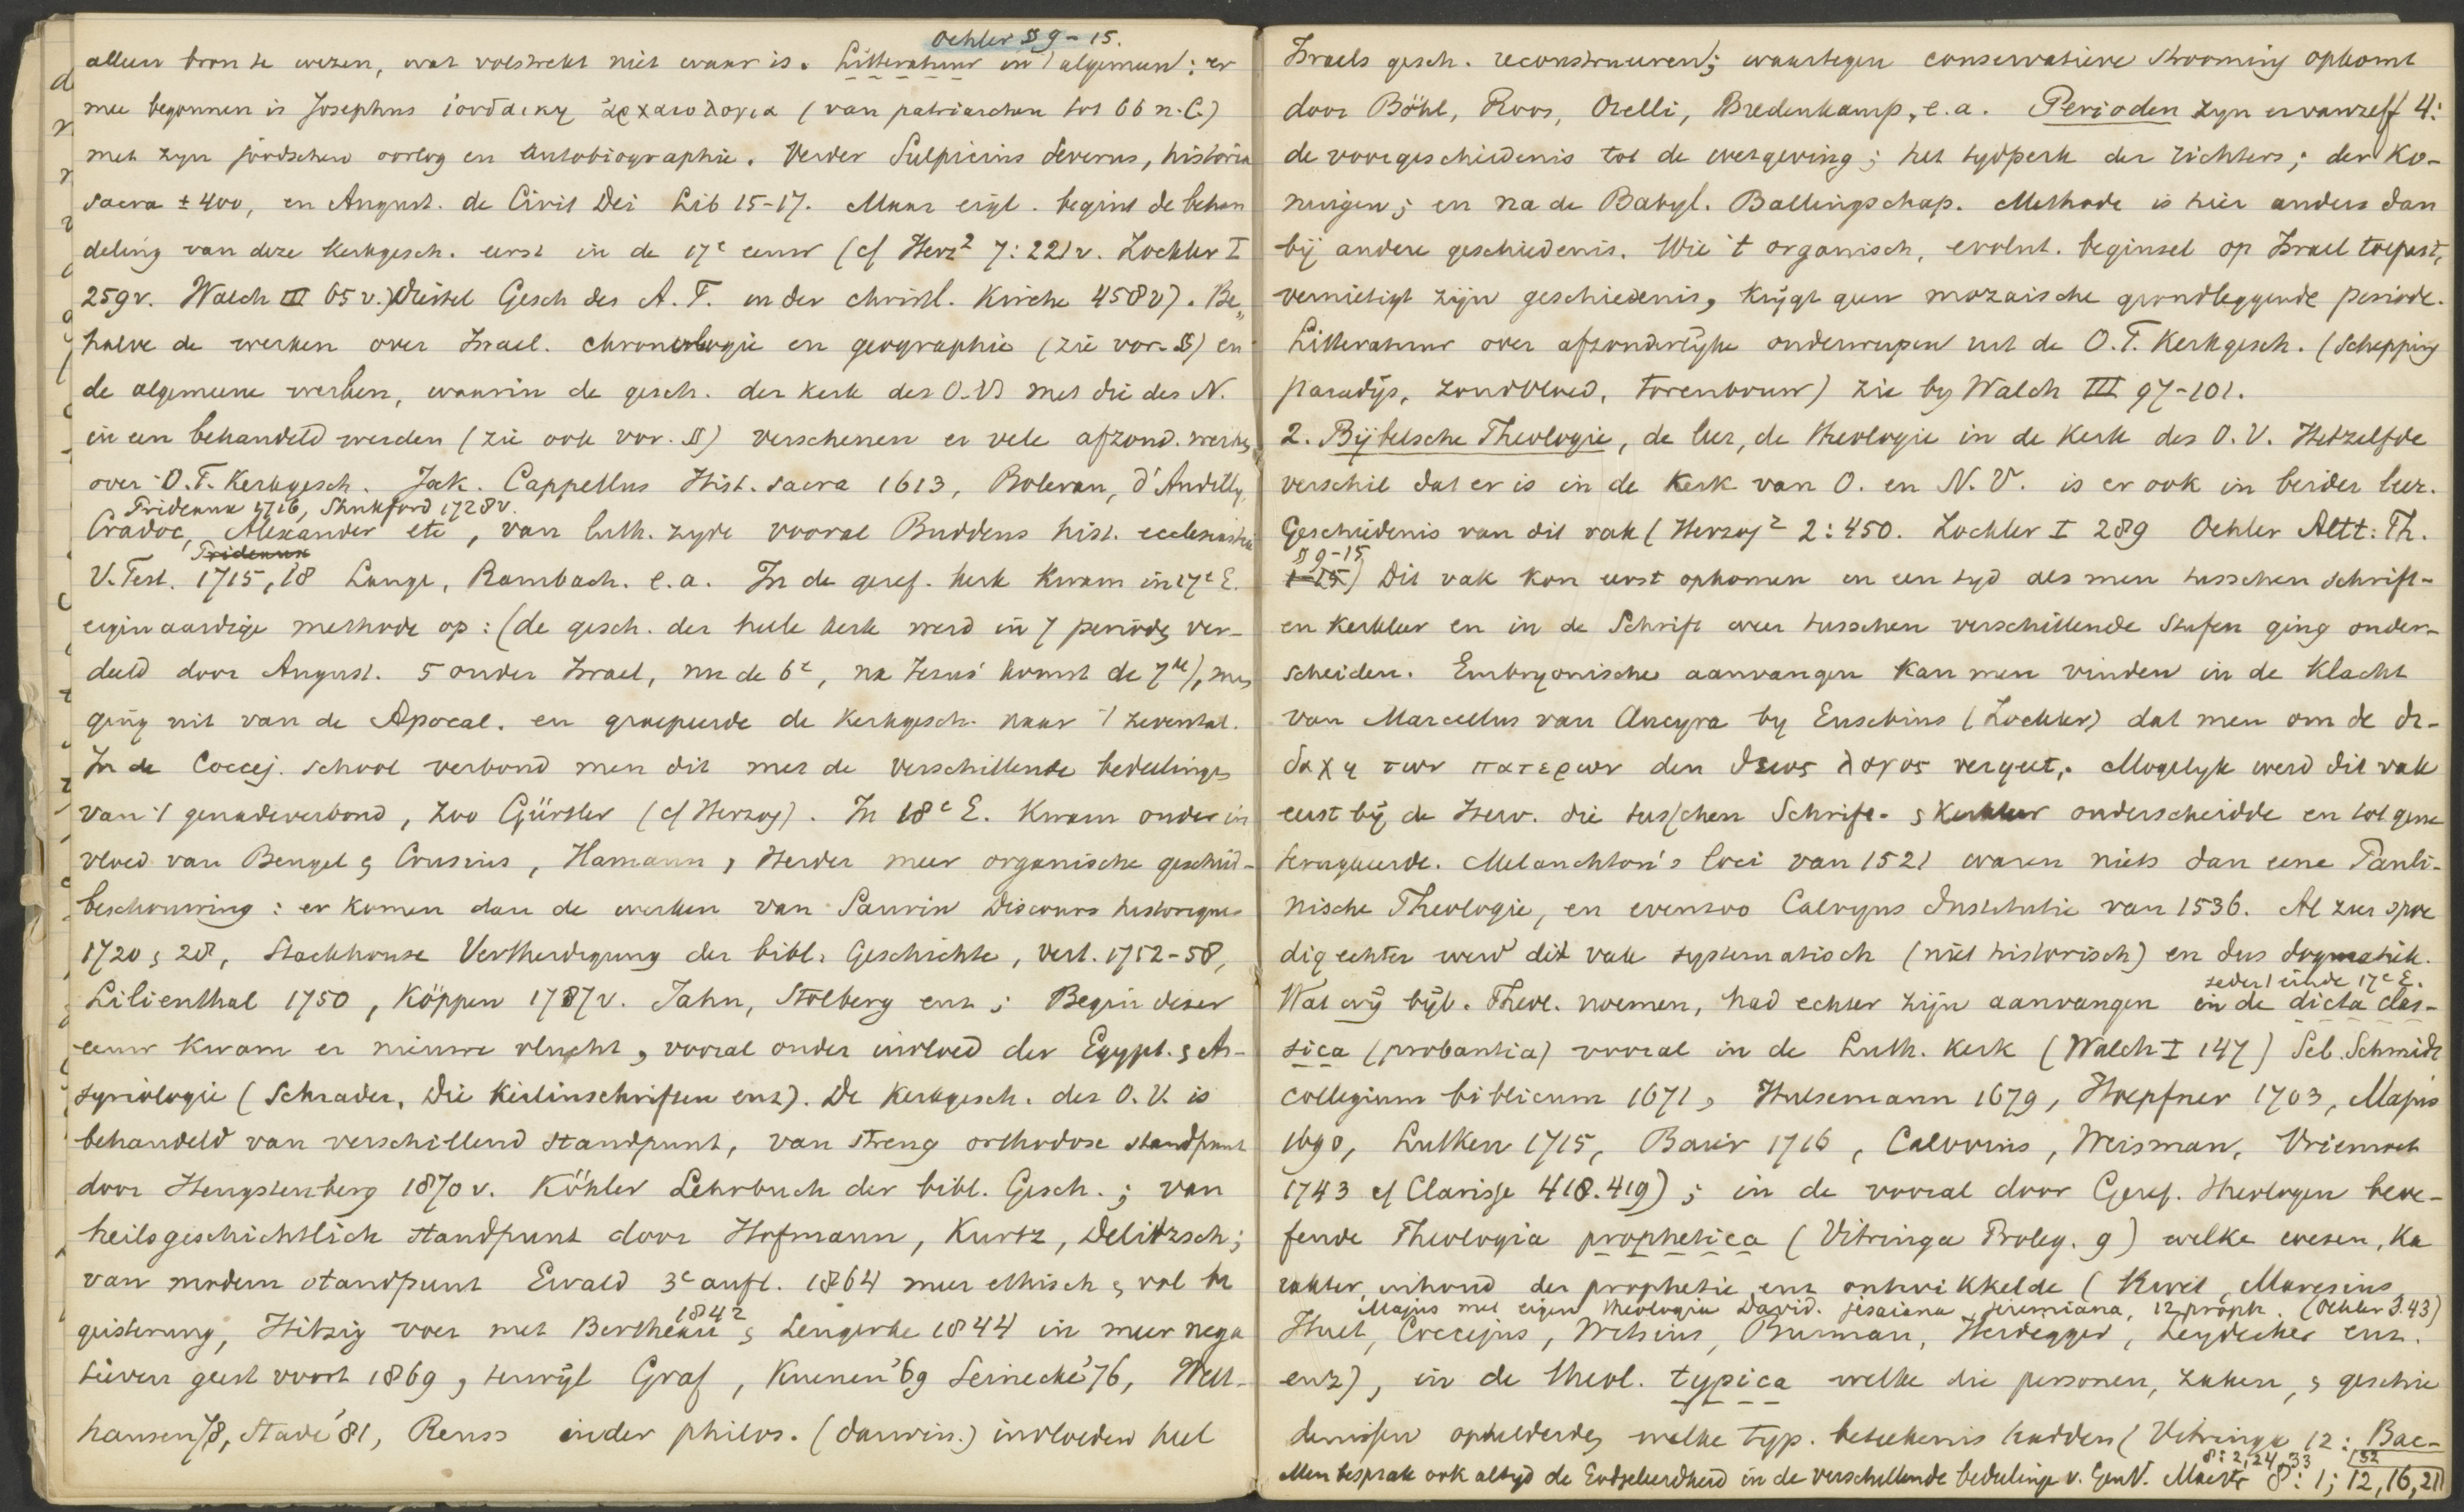 Oehler § 9-15.
alleen bron te wezen, wat volstrekt niet waar is. Litteratuur in 't algemeen: er
mee begonnen is Josephus ἰουδαικη ἀρχαιολογια (van patriarchen tot 66 n.C.)
met zyn joodschen oorlog en autobiographie. Verder Sulpicius Severus, historia
sacra ± 400, en August. de Civit Dei Lib 15-17. Maar eigl. begint de behan
deling van deze kerkgesch. eerst in de 17e eeuw (cf Herz² 7:221v. Zöckler I
259v. Walch III 65v.) Diestel Gesch des A.T. in der christl. Kirche 458v). Be„
halve de werken over Israel. chronologie en geographie (zie vor. §) en
de algemeene werken, waarin de gesch. der kerk des O.V. met die des N.
in een behandeld werden (zie ook vor. §) verschenen er vele afzond. werken
over O.T. Kerkgesch. Jak. Cappellus Hist. sacra 1613, d'Andilly,
Prideaux 1716, Shukford 1728v.
Cradoc, Alexander etc, van luth. zyde vooral Buddeus hist. ecclesiastica
Prideaux
V. Test. 1715, 18 Lange, Rambach. e.a. In de geref. kerk kwam in 17e E.
eigenaardige methode op: (de gesch. der heele kerk werd in 7 perioden ver-
deeld door August. 5 onder Israel, nu de 6e, na Jezus' komst de 7de), men
ging uit van de Apocal. en groepeerde de kerkgesch. naar 't zevental.
In de Coccej. school verbond men dit met de verschillende bedeelingen
van 't genadeverbond, zoo Gürtler (cf Herzog). In 18e E. kwam onder in
vloed van Bengel & Crusius, Hamann, Herder meer organische geschied-
beschouwing: er komen dan de werken van Saurin Discours historiques
1720 & 28, Stackhouse Vertheidigung der bibl. Geschichte, vert. 1752-58,
Lilienthal 1750, Köppen 1787v. Jahn, Stolberg enz; Begin dezer
eeuw kwam er nieuwe vlucht, vooral onder invloed der Egypt. & As-
syriologie (Schrader, Die Keilinschriften enz). De kerkgesch. des O.V. is
behandeld van verschillend standpunt, van streng orthodox standpunt
door Hengstenberg 1870v. Köhler Lehrbuch der bibl. Gesch.; van
heilsgeschichtlich standpunt door Hofmann, Kurtz, Delitzsch;
van modern standpunt Ewald 3e aufl. 1864 meer ethisch & vol be
1842
geistering, Hitzig voer met Bertheau & Lengerke 1844 in meer nega
tieven geest voort 1869, terwijl Graf, Kuenen '69 Seinecke '76, Well-
hausen 78, Stade '81, Reuss onder philos. (darwin.) invloeden heel
Israels gesch. reconstrueeren; waartegen conservatieve strooming opkomt
door Böhl, Roos, Orelli, Bredenkamp, e.a. Perioden zyn er vanzelf 4:
de voorgeschiedenis tot de wetgeving; het tydperk der richters; der Ko-
ningen; en na de Babyl. Ballingschap. Methode is hier anders dan
bij andere geschiedenis. Wie 't organisch, evolut. beginsel op Israel toepast,
vernietigt zijn geschiedenis, krijgt geen mozaische grondleggende periode.
Litteratuur over afzonderlijke onderwerpen uit de O.T. Kerkgesch. (Schepping
paradijs, zondvloed, torenbouw) zie by Walch III 97-101.
2. Bijbelsche Theologie, de leer, de theologie in de kerk des O.V. Hetzelfde
verschil dat er is in de kerk van O. en N.V. is er ook in beider leer.
Geschiedenis van dit vak (Herzog² 2:450. Zöckler I 289 Oehler Altt. Th.
§ 9-15
1-15) Dit vak kon eerst opkomen en een tyd als men tusschen schrift-
en kerkleer en in de Schrift weer tusschen verschillende Stufen ging onder-
scheiden. Embryonische aanvangen kan men vinden in de klacht
van Marcellus van Ancyra by Eusebius (Zöckler) dat men om de δι-
δαχη των πατερων den θειος λογος vergeet. Mogelyk werd dit vak
eerst bij de Herv. die tusschen Schrift- & kerkleer onderscheidde en tot gene
terugkeerde. Melanchton's loci van 1521 waren niets dan eene Pauli-
nische Theologie, en evenzoo Calvyns Institutie van 1536. Al zeer spoe
dig echter werd dit vak systematisch (niet historisch) en dus dogmatiek.
seder 't einde 17e E.
Wat wij bijb. Theol. noemen, had echter zijn aanvangen in de dicta clas-
sica (probantia) vooral in de Luth. kerk (Walch I 147) Seb. Schmidt
collegium biblicum 1671, Hulsemann 1679, Hoepfner 1703, Majus
1690, Lutken 1715, Baier 1716, Calvoerius, Weisman, Vriemoet
1743 cf Clarisse 418.419); in de vooral door Geref. theologen beoe-
fende Theologia prophetica (Vitringa Proleg. 9) welke wezen, ka
rakter, inhoud der prophetie enz ontwikkelde (Maresius
Majus met eigen theologia David. jesaiana, jeremiana, 12 proph. (Oehler S.43)
Huet, Coccejus, Witsius, Burman, Heidegger, Leydecker enz.
enz), in de theol. typica welke die personen, zaken, & geschie
denissen ophelderde, welke typ. beteekenis hadden (Vitringa 12: Bac-
8:2,24,33 152
Men besprak ook altyd de Godgeleerdheid in de verschillende bedeelinge v. GenV. 8:1; 12, 16, 21